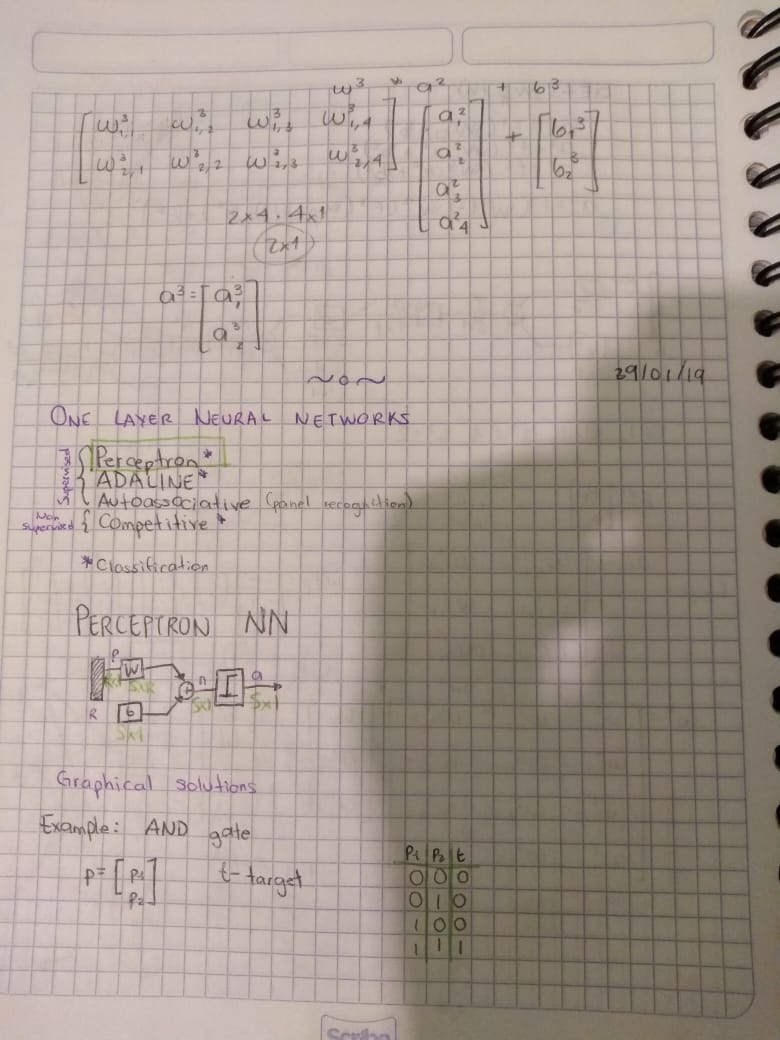 w³ * a² + b³
[ w³1,1 w³1,2 w³1,3 w³1,4 ] [ a²1 ] + [ b1³ ]
[ w³2,1 w³2,2 w³2,3 w³2,4 ] [ a²2 ] [ b2³ ]
[ a²3 ]
[ a²4 ]
2x4 · 4x1
2x1
a³ = [ a³1 ]
[ a³2 ]
~o~
29/01/19
ONE LAYER NEURAL NETWORKS
Supervised { Perceptron *
ADALINE *
Autoassociative (panel recognition)
Non supervised { Competitive *
* Classification
PERCEPTRON NN
P W n a
Rx1 SxR Sx1 Sx1
R b
Sx1
Graphical solutions
Example: AND gate
p = [ p1 ] t - target
[ p2 ]
P1 P2 t
0 0 0
0 1 0
1 0 0
1 1 1
Scribe